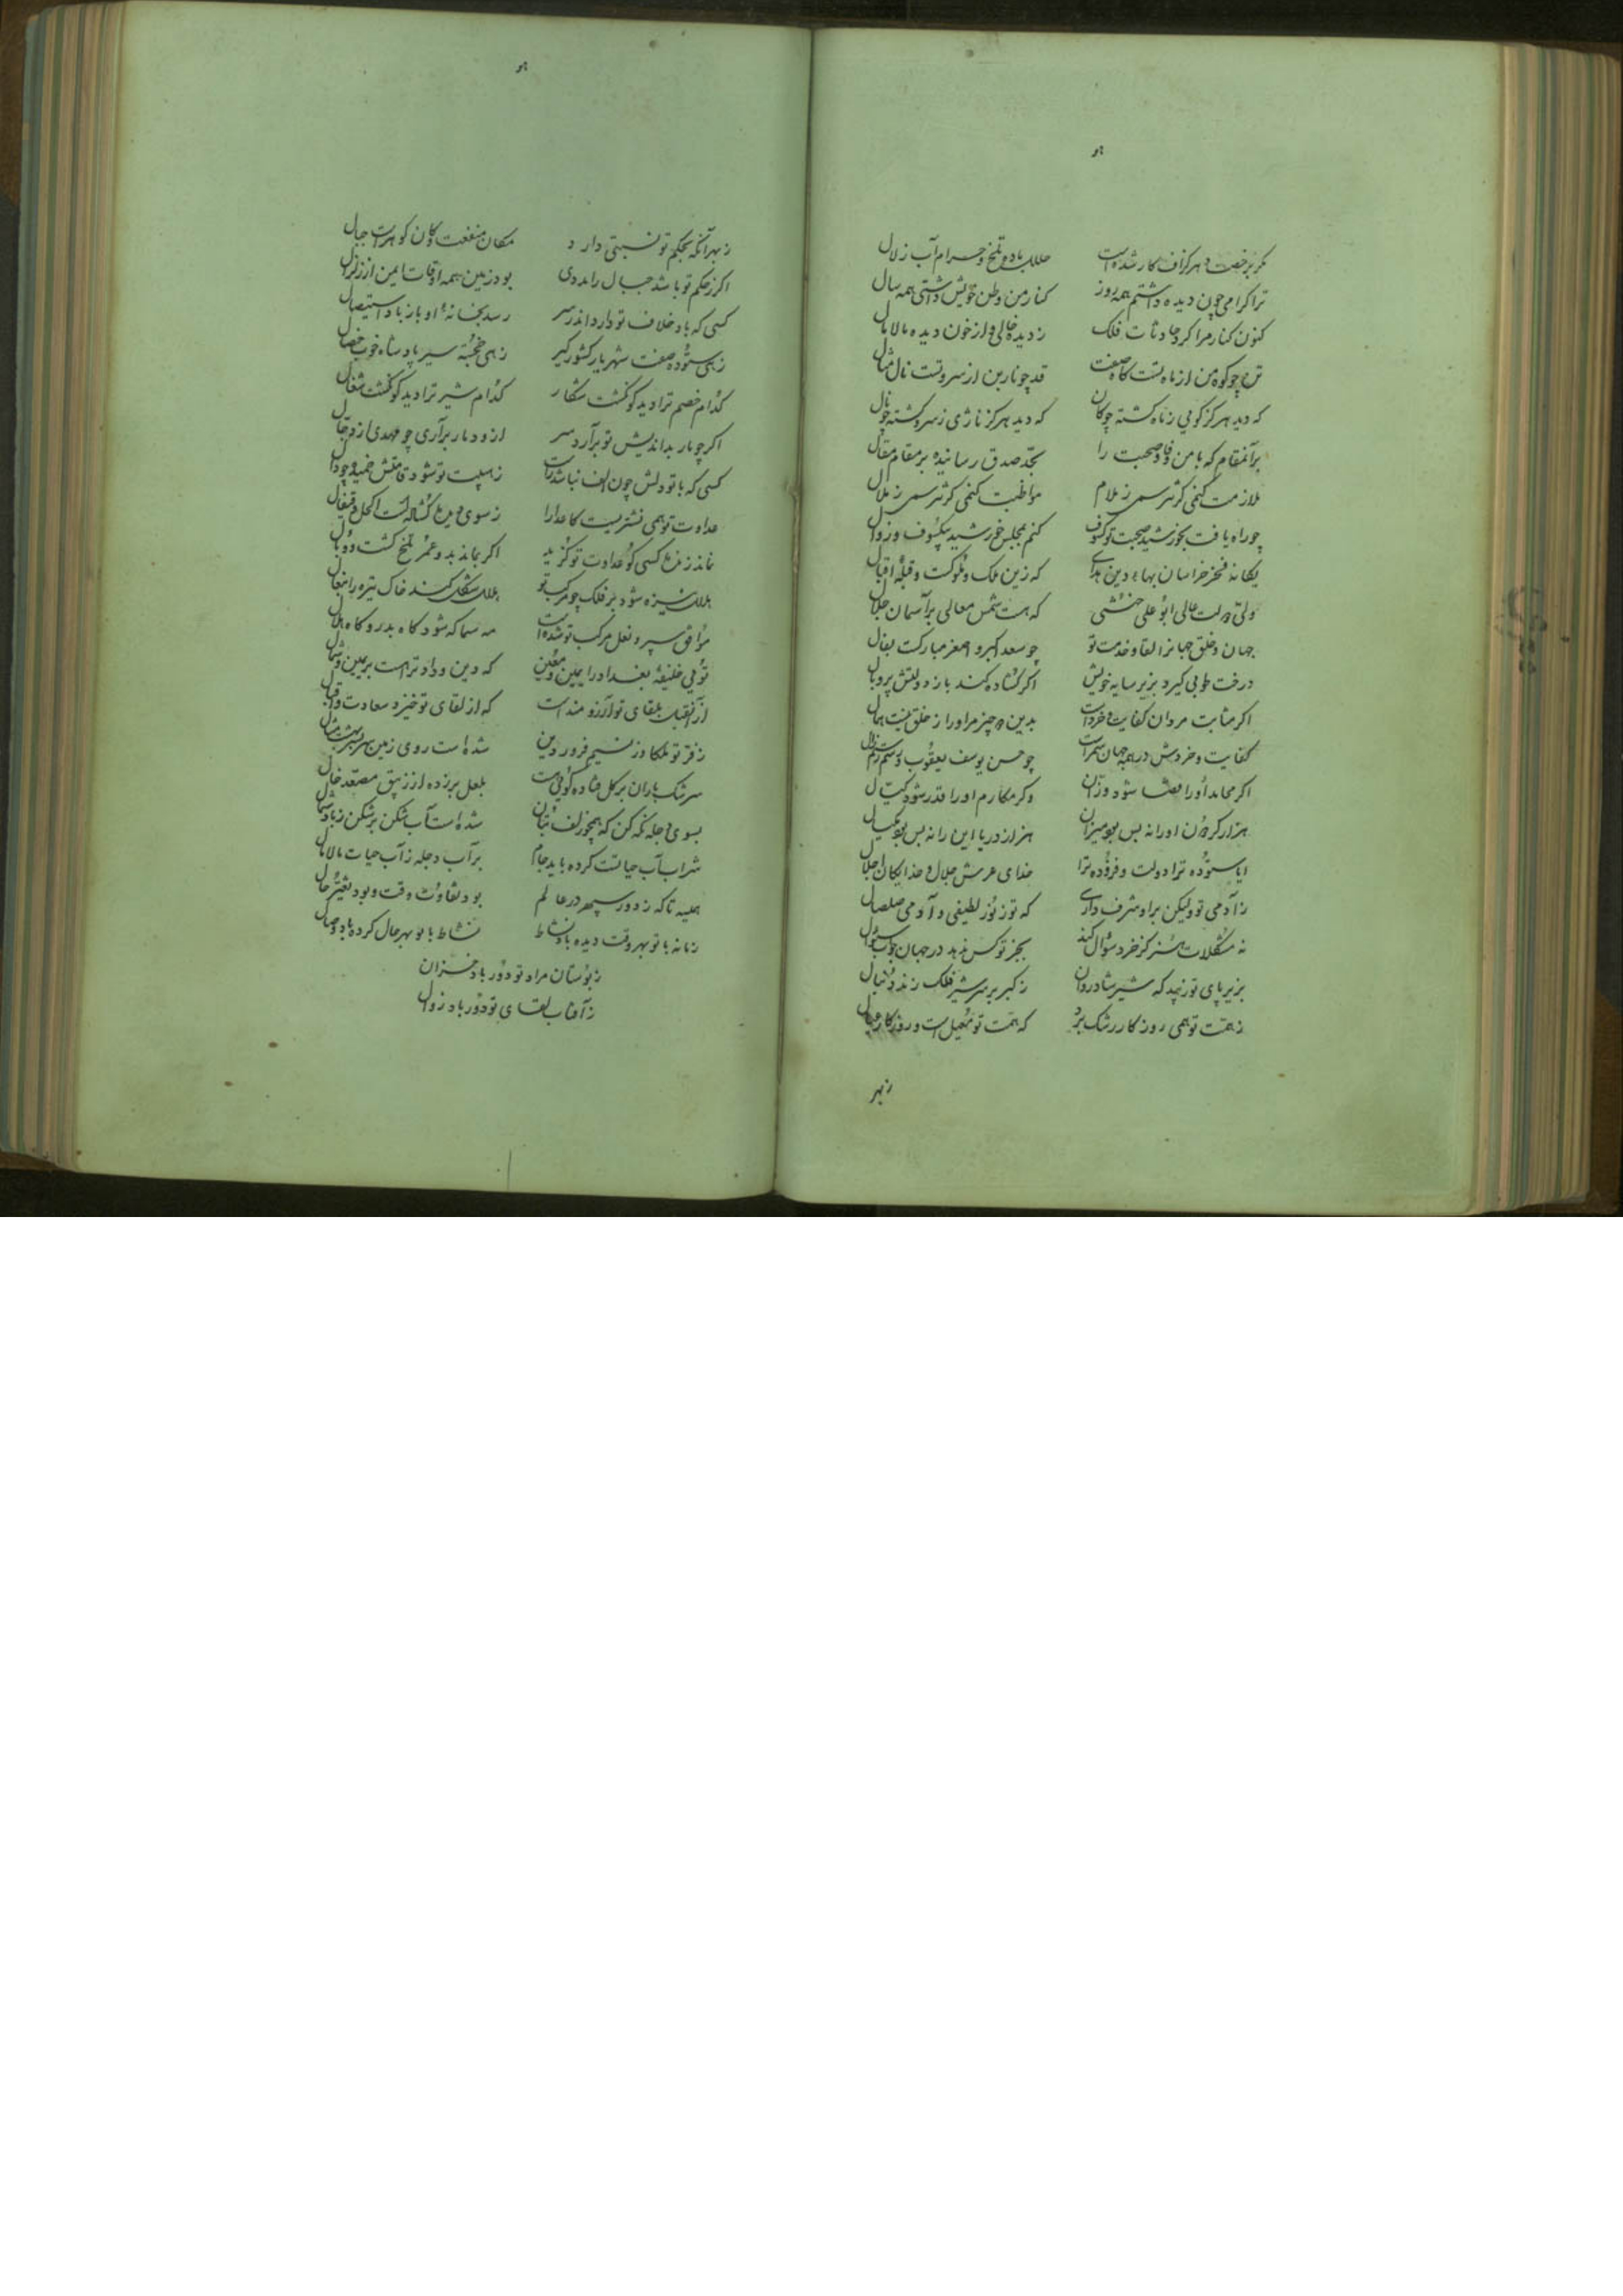 هو
مگر برخصت دهر گزاف کار شده است حلال باده تلخ و حرام آب زلال
ترا گرامی چون دیده داشتم همه روز کنار من وطن خویش داشتی همه سال
کنون کنار مرا کرد حادثات فلک ز دیده خالی و از خون دیده مالامال
تن چو کوه من از ماه تست کاه صفت قد چو نارین از سرو تست نال مثال
که دید هرگز کوهی ز ماه گشته چو کاه که دید هرگز ناژی ز سرو گشته چو نال
برآنمقام که با من وفا و صحبت را بجد صدق رسانیده بر مقام مقال
ملازمت کنمی گر نترسمی ز ملام مواظبت کنمی گر نترسمی ز ملال
چو راه یافت بخورشید صحبت تو کسوف کنم بمجلس خورشید بیکسوف و زوال
یگانه فخر خراسان بهاء دین هدای که زین ملک و ملوکست و قبلهٔ اقبال
ولی دولت عالی ابوعلی ختنی که هست شمس معالی بر آسمان جلال
جهان و خلق جهانرا لقا و خدمت تو چو سعد اکبر و اصغر مبارکست بفال
درخت طوبی گیرد بزیر سایه خویش اگر گشاده کند باز دولتش پر و بال
اگر مثابت مردان کفایت و خرد است بدین دو چیز مر او را ز خلق نیست همال
کفایت و خردش در همه جهان سمر است چو حسن یوسف یعقوب و رستم زال
اگر محامد او را قضا شود وزان وگر مکارم او را قدر شود کیال
هزار گردون او را نه بس بود میزان هزار دریا این را نه بس بود مکیال
ایا ستوده ترا دولت و فزوده ترا خدای عرش جلال و خدایگان اجلال
ز آدمی تو ولیکن بر او شرف داری که تو ز نور لطیفی و آدمی صلصال
نه مشکلات هنر کز خرد سؤال کند بجز تو کس ندهد در جهان جواب سؤال
بزیر پای تو زیبد که شیر شادروان ز کبر بر سر شیر فلک زند دنبال
ز همت تو همی روزگار رشک برد که همت تو معیل است و روزگار عیال
زبهر
هو
ز بهر آنکه بحکم تو نسبتی دارد مکان منفعت و کان گوهر است جبال
اگر ز حکم تو باشد جبال را مددی بود زمین همه اوقات ایمن از زلزال
کسی که باد خلاف تو دارد اندر سر رسد بخانهٔ او باز باد استیصال
زهی ستوده صفت شهریار کشورگیر زهی خجسته سیر پادشاه خوب خصال
کدام خصم ترا دید کو نگشت شکار کدام شیر ترا دید کو نگشت شغال
اگر چو مار بداندیش تو برآرد سر ازو دمار برآری چو مهدی از دجال
کسی که با تو دلش چون الف نباشد راست ز هیبت تو شود قامتش خمیده چو دال
عداوت تو همی نشتریست کاعدا را ز سوی دیده گشاده است اکحل و قیفال
نماند زنده کسی کو عداوت تو گزید اگر بماند بد و عمر تلخ گشت و وبال
هلال شیزه شود بر فلک چو مرکب تو هلال شکل کند خاک تیره را بنعال
موافق سپر و نعل مرکب تو شده است مه سما که شود گاه بدر و گاه هلال
توئی خلیفهٔ بغداد را یمین و معین که دین و داد ترا هست بر یمین و شمال
از آنقبل بلقای تو آرزومند است که از لقای تو خیزد سعادت و اقبال
ز فر تو ملکا وز نسیم فروردین شده است روی زمین سر بسر بهشت مثال
سرشک باران بر گل فتاده گوئی هست بلعل برزده از زیبق مصعد خال
بسوی دجله نگه کن که همچو زلف بتان شده است آب شکن بر شکن ز باد شمال
شراب آب حیاتست کرده باید جام بر آب دجله ز آب حیات مالامال
همیشه تا که ز دور سپهر در عالم بود تفاوت وقت و بود تغیر حال
زمانه با تو بهر وقت دیده باد نشاط نشاط با تو بهر حال کرده باد وصال
ز بوستان مراد تو دور باد خزان
ز آفتاب لقای تو دور باد زوال